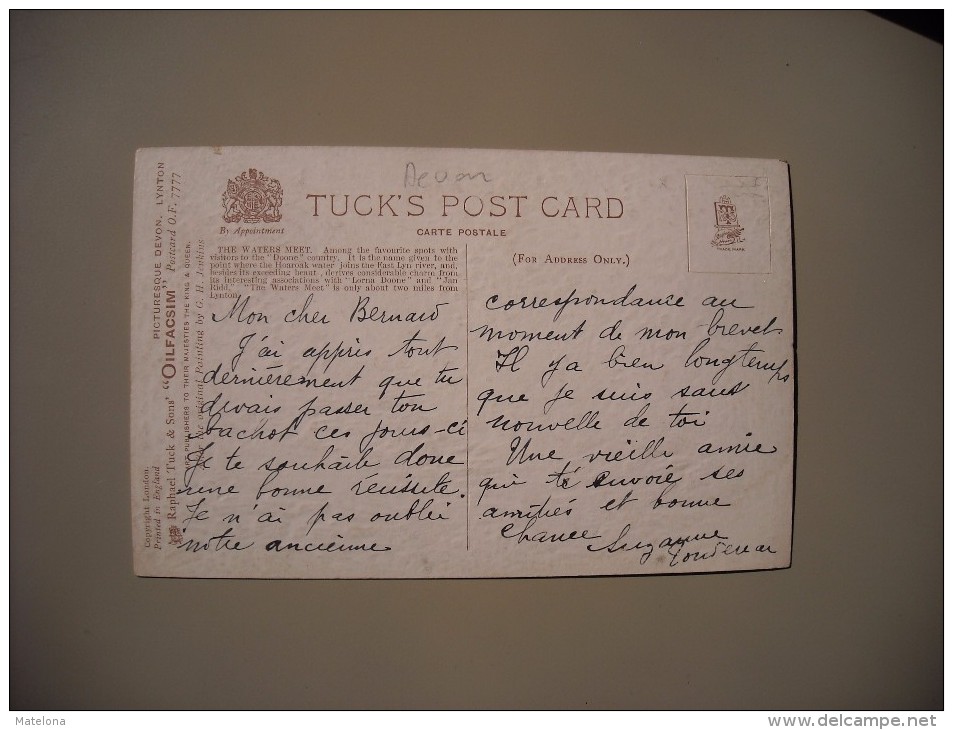 Devon
By Appointment
TUCK'S POST CARD
CARTE POSTALE
(FOR ADDRESS ONLY.)
TRADE MARK
THE WATERS MEET. Among the favourite spots with
visitors to the "Doone" country. It is the name given to the
point where the Hoaroak water joins the East Lyn river, and,
besides its exceeding beauty, derives considerable charm from
its interesting associations with "Lorna Doone" and "Jan
Ridd." "The Waters Meet" is only about two miles from
Lynton.
PICTURESQUE DEVON. LYNTON
Raphael Tuck & Sons' "OILFACSIM" Postcard O.F. 7777
ART PUBLISHERS TO THEIR MAJESTIES THE KING & QUEEN.
the original Painting by G. H. Jenkins
Copyright London,
Printed in England
Mon cher Bernard
J'ai appris tout
dernièrement que tu
devais passer ton
bachot ces jours-ci
Je te souhaite donc
une bonne réussite.
Je n'ai pas oublié
notre ancienne
correspondance au
moment de mon brevet
Il y a bien longtemps
que je suis sans
nouvelle de toi
Une vieille amie
qui t'envoie ses
amitiés et bonne
chance
Suzanne
Matelona
www.delcampe.net